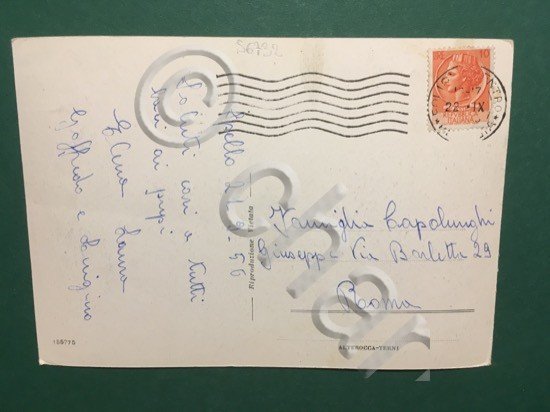 S6792
10
22 · IX
Spello 21-9-56
Saluti cari a tutti
baci ai pupi
Elena Laura
Goffredo e Luigino
Riproduzione Vietata
Famiglia Capolunghi
Giuseppe Via Barletta 29
Roma
ALTEROCCA-TERNI
© char